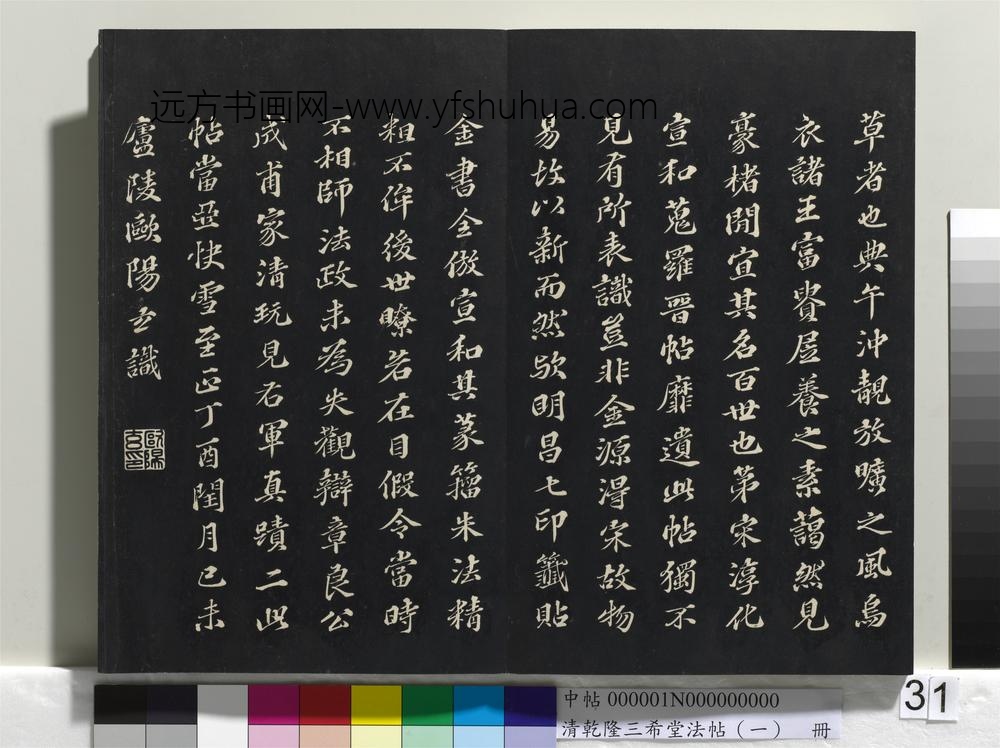 远方书画网-www.yfshuhua.com
草者也典午沖靚放曠之風烏
衣諸王富貴居養之素藹然見
豪楮閒宣其名百世也第宋淳化
宣和蒐羅晉帖靡遺此帖獨不
見有所表識豈非金源得宋故物
易故以新而然歟明昌七印籤貼
金書全倣宣和其篆籀朱法精
粗不侔後世瞭若在目假令當時
不相師法政未為失觀辯章良公
成甫家清玩見右軍真蹟二此
帖當亞快雪至正丁酉閏月己未
廬陵歐陽玄識
歐陽玄印
中帖 000001N000000000
清乾隆三希堂法帖（一） 冊
31